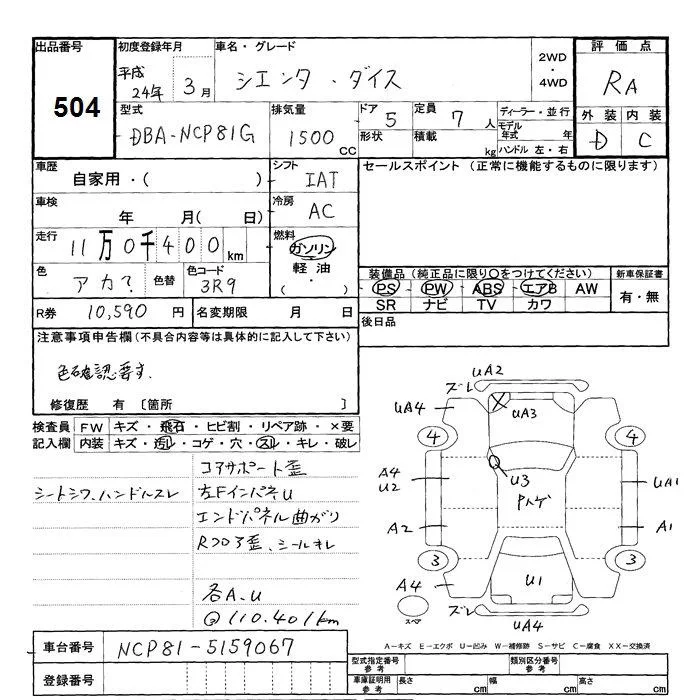 出品番号
504
初度登録年月
平成 24年 3月
車名・グレード
シエンタ・ダイス
2WD
・
4WD
評価点
RA
外装 内装
D C
型式
DBA-NCP81G
排気量
1500 CC
ドア 5
形状
定員 7 人
積載 kg
ディーラー・並行
モデル年式 年
ハンドル 左・右
車歴
自家用・( )
シフト
IAT
セールスポイント (正常に機能するものに限ります)
車検
年 月( 日)
冷房
AC
走行
11万0千400km
燃料
ガソリン
軽油
( ・ )
色
アカ?
色替
色コード
3R9
装備品(純正品に限り○をつけてください)
PS PW ABS エアB AW
SR ナビ TV カワ
新車保証書
有・無
R券 10,590 円
名変期限 月 日
後日品
注意事項申告欄(不具合内容等は具体的に記入して下さい)
色確認要す.
修復歴 有 〔箇所 〕
検査員記入欄
FW キズ・飛石・ヒビ割・リペア跡・×要
内装 キズ・汚レ・コゲ・穴・スレ・キレ・破レ
シートシワ.ハンドルスレ
コアサポート歪
左FインパネU
エンドパネル曲がり
Rフロア歪、シールキレ
各A.U
@110.401km
UA2
ズレ
UA4
UA3
4
4
A4
U2
U3
Pトゲ
UA1
A2
A1
3
3
A4
U1
スペア
ズレ
UA4
A-キズ E-エクボ U-凹み W-補修跡 S-サビ C-腐食 XX-交換済
車台番号
NCP81-5159067
登録番号
型式指定番号 参考
類別区分番号 参考
車庫証明用 参考
長さ cm
幅 cm
高さ cm